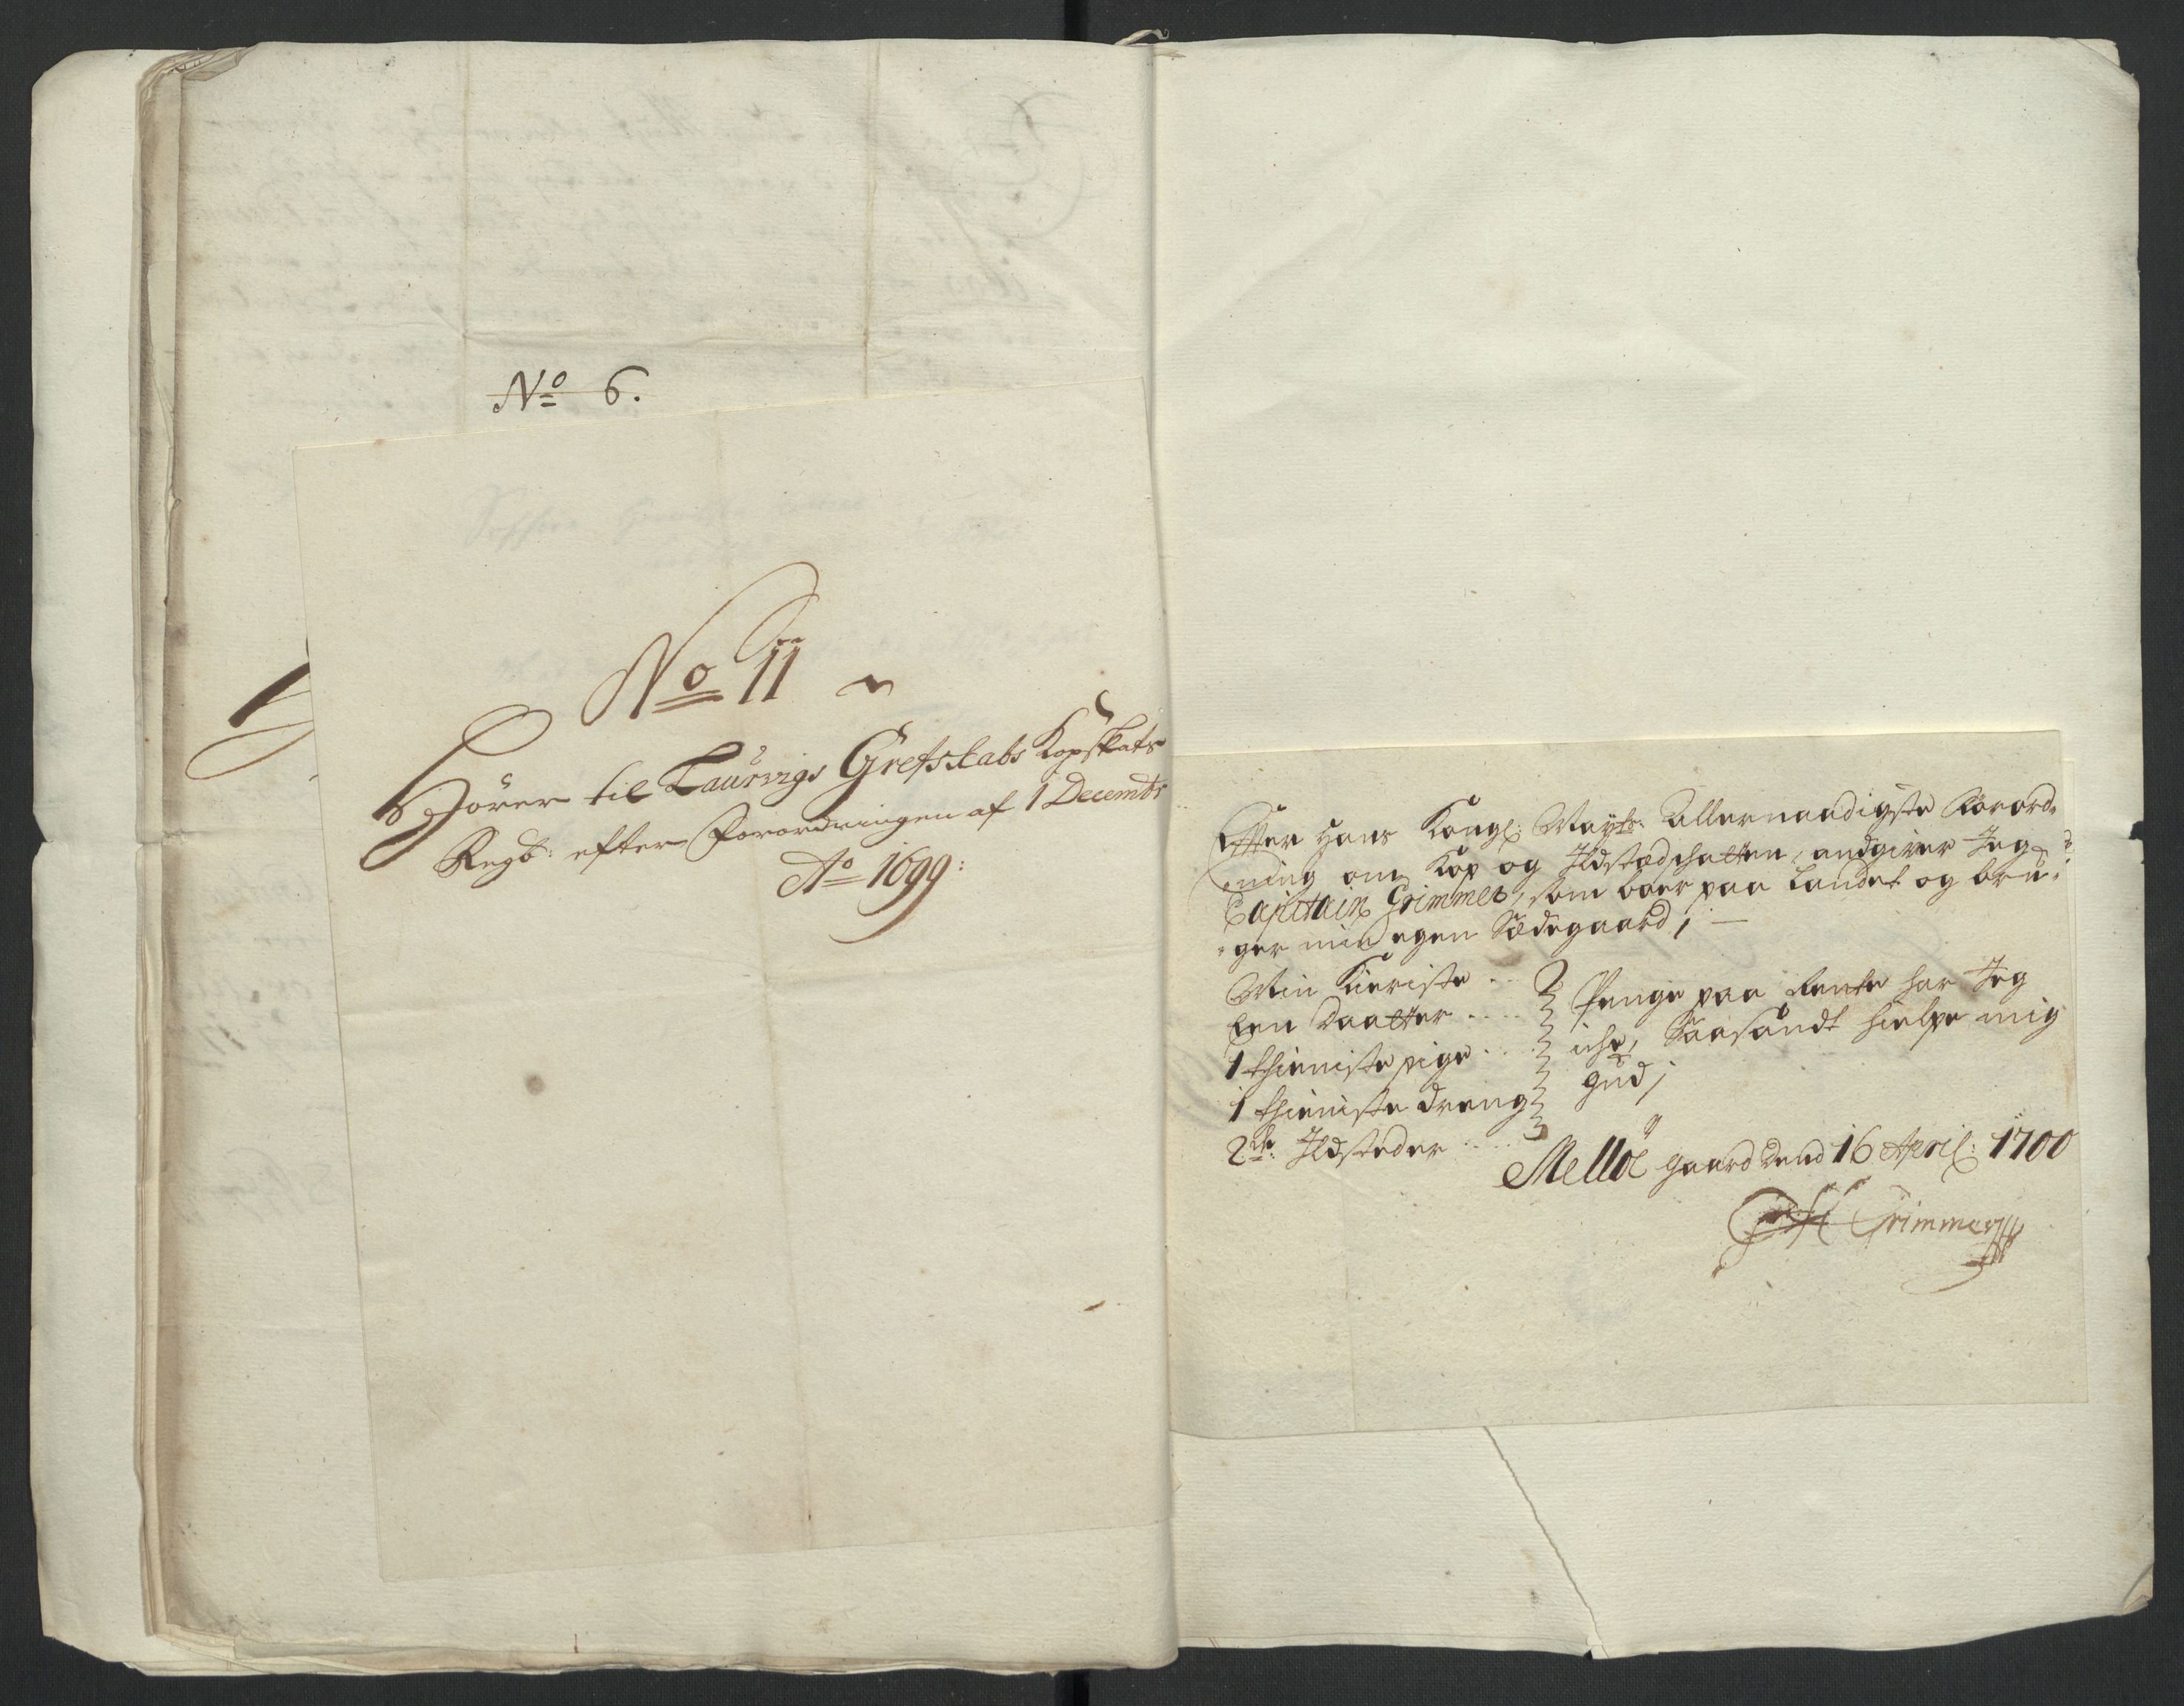 No 6.
No 11
Hörer til Laurvigs Grefskabs Kopskats
Regb: efter Forordningen af 1 Decembr
Ao 1699:
Efter Hans Kongl: Mayts: Allernaadigste Forord=
=ning om Kop og Ildstædschatten, andgiver Jeg
Capitain Grimmer, som boer paa Landet og bru=
=ger min egen Sædegaard;
Min Kieriste
Een Daatter
1 thieniste pige
1 thieniste dreng
2de Ildsteder
Penge paa Rente har Jeg
iche, Saasandt hielpe mig
Gud;
Melloe gaard dend 16 April: 1700
Grimmer